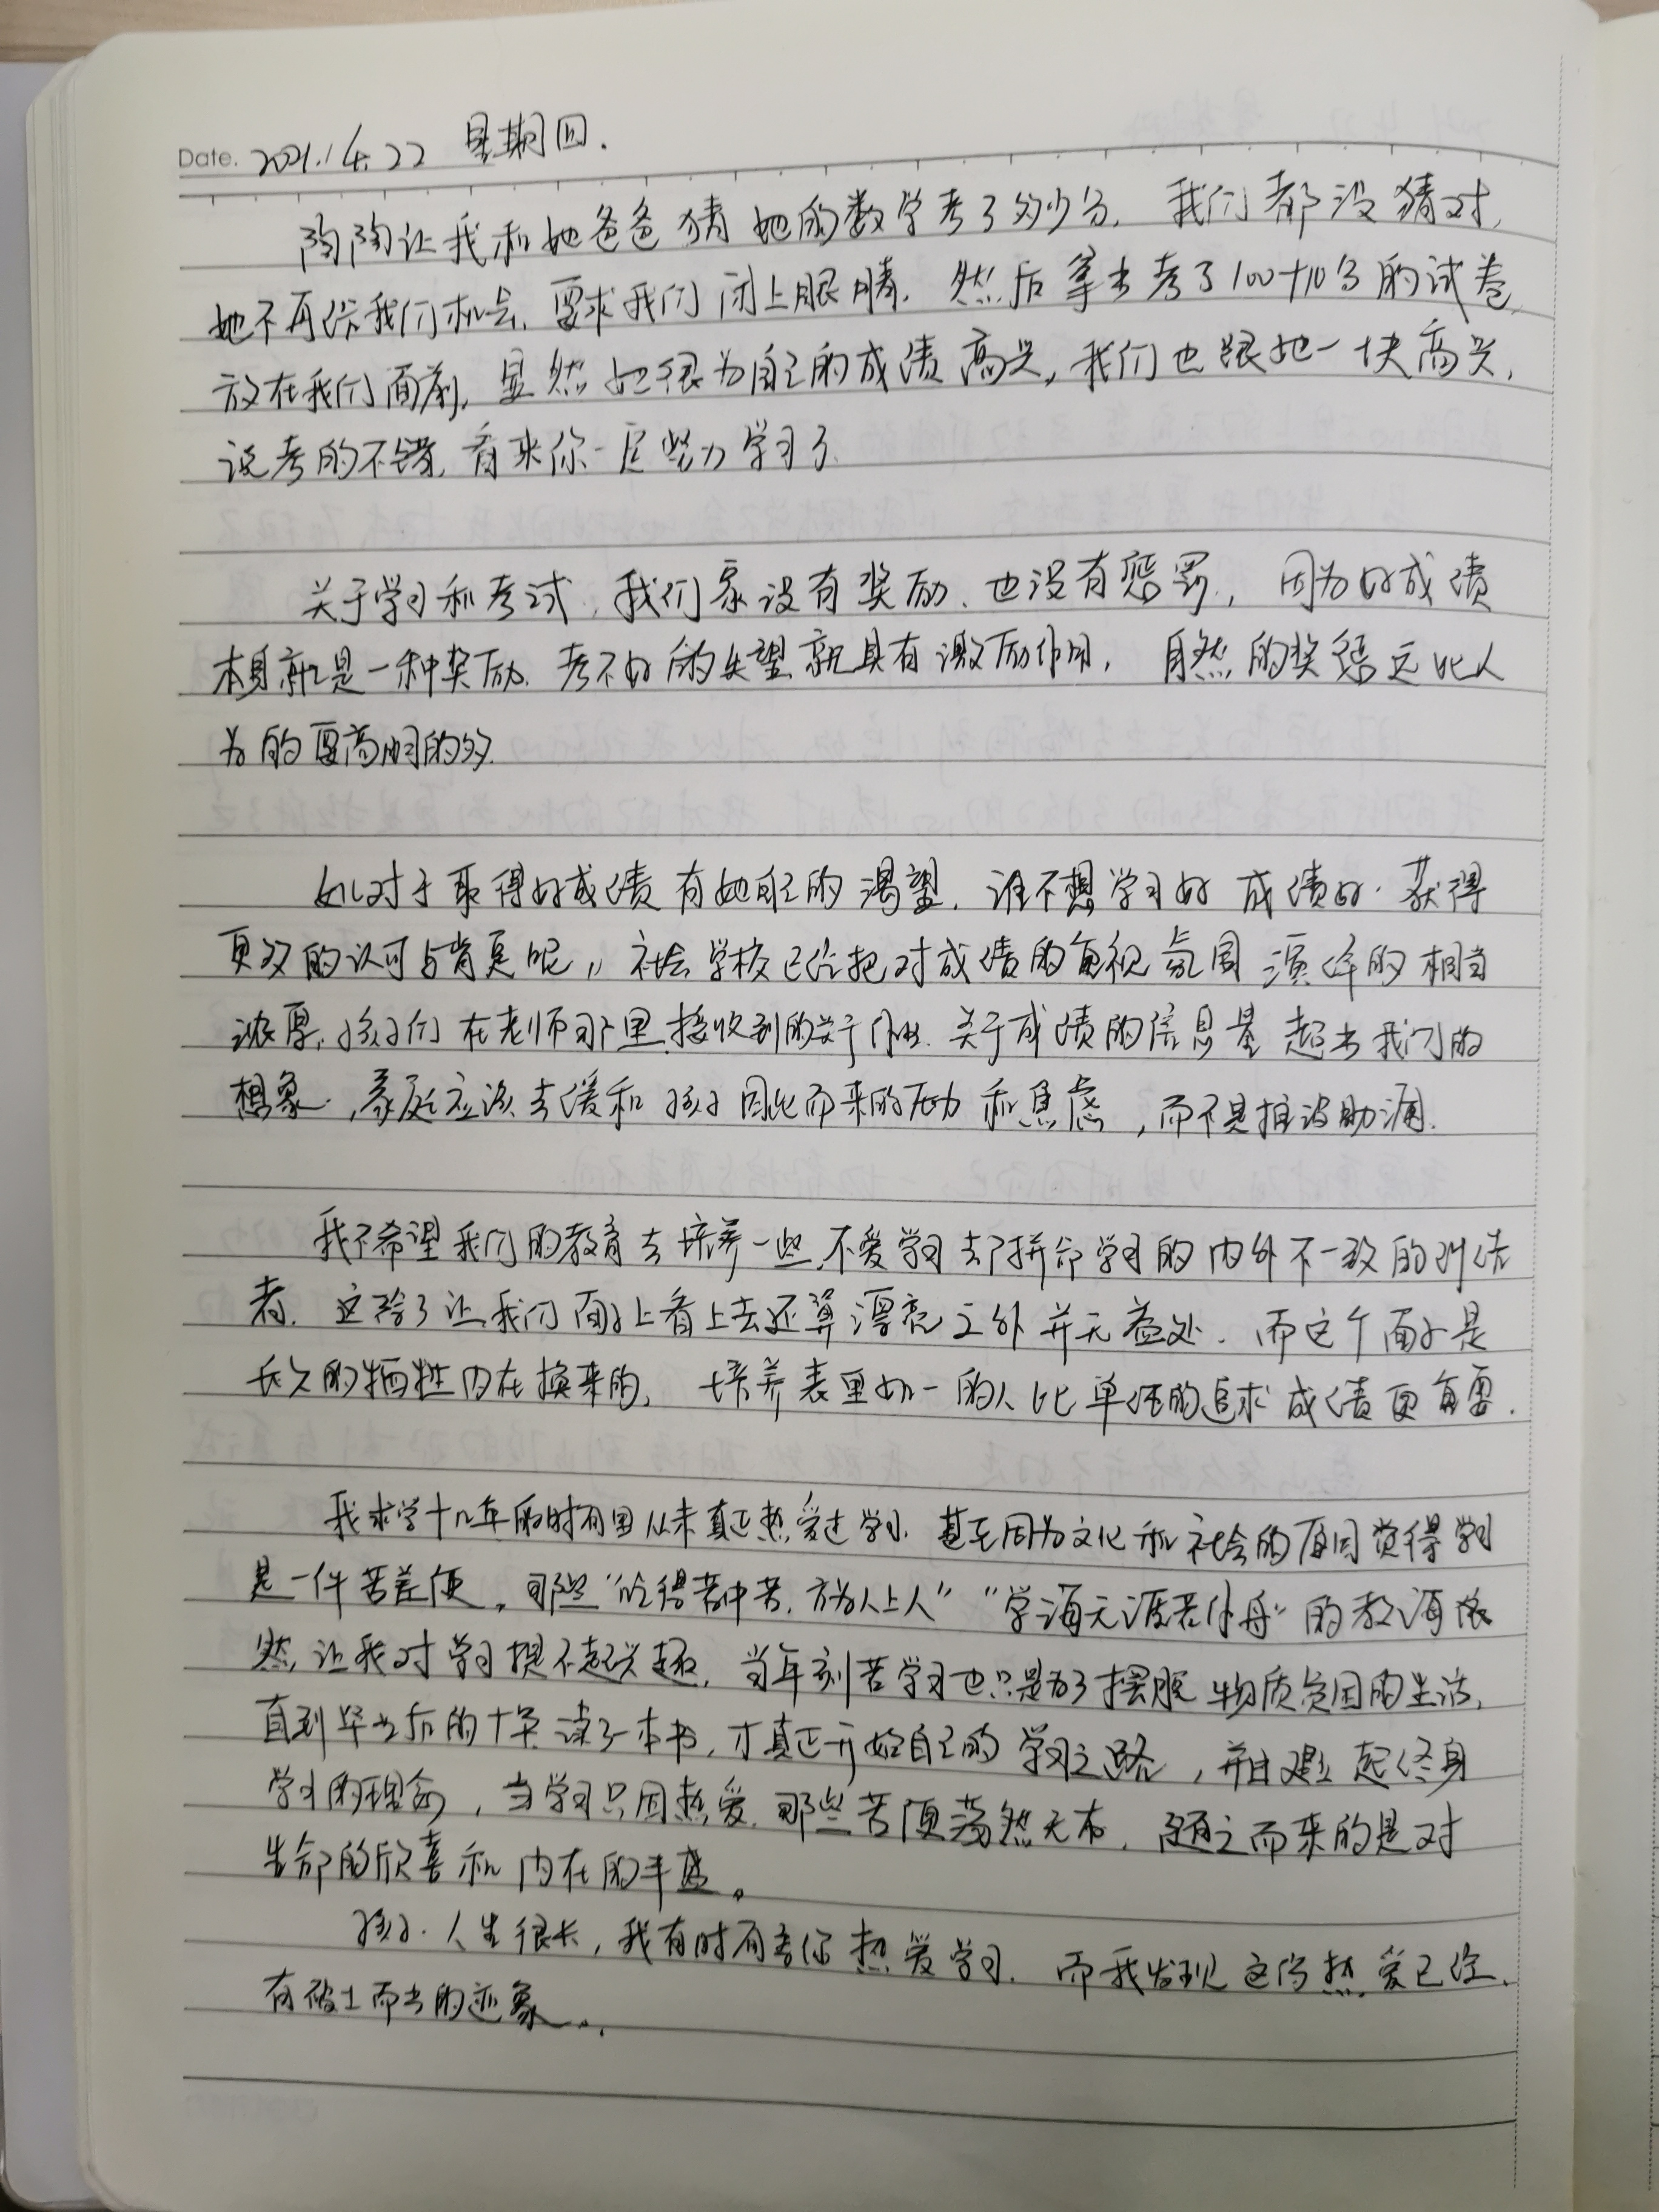 Date. 2021.4.22 星期四.
陶陶让我和她爸爸猜她的数学考了多少分, 我们都没猜对,
她不再给我们机会, 要求我们闭上眼睛, 然后拿出考了100+10分的试卷,
放在我们面前, 显然她很为自己的成绩高兴, 我们也跟她一块高兴,
说考的不错, 看来你一定努力学习了.
关于学习和考试, 我们家没有奖励、也没有惩罚, 因为好成绩
本身就是一种奖励, 考不好的失望就具有激励作用, 自然的奖惩远比人
为的要高明的多.
她对于取得好成绩有她自己的渴望, 谁不想学习好 成绩好、获得
更多的认可与肯定呢, 社会学校已经把对成绩的重视氛围演绎的相当
浓厚, 孩子们在老师那里接收到的关于作业、关于成绩的信息量超出我们的
想象, 家庭应该去缓和孩子因此而来的压力和焦虑, 而不是推波助澜.
我不希望我们的教育去培养一些不爱学习却拼命学习的内外不一致的
者, 这除了让我们面子上看上去还算漂亮之外并无益处, 而这个面子是
长久的牺牲内在换来的, 培养表里如一的人比单纯的追求成绩更重要.
我求学十几年的时间里从未真正热爱过学习, 甚至因为文化和社会的原因觉得学习
是一件苦差使, 那些"吃得苦中苦, 方为人上人" "学海无涯苦作舟" 的教诲依
然让我对学习提不起兴趣, 当年刻苦学习也只是为了摆脱物质贫困的生活,
直到毕业后的十年读了一本书, 才真正开始自己的学习之路, 并且建立起终身
学习的理念, 当学习只因热爱, 那些苦便荡然无存, 随之而来的是对
生命的欣喜和内在的丰盛。
孩子、人生很长, 我有时间等你热爱学习, 而我发现这份热爱已经
有破土而出的迹象...